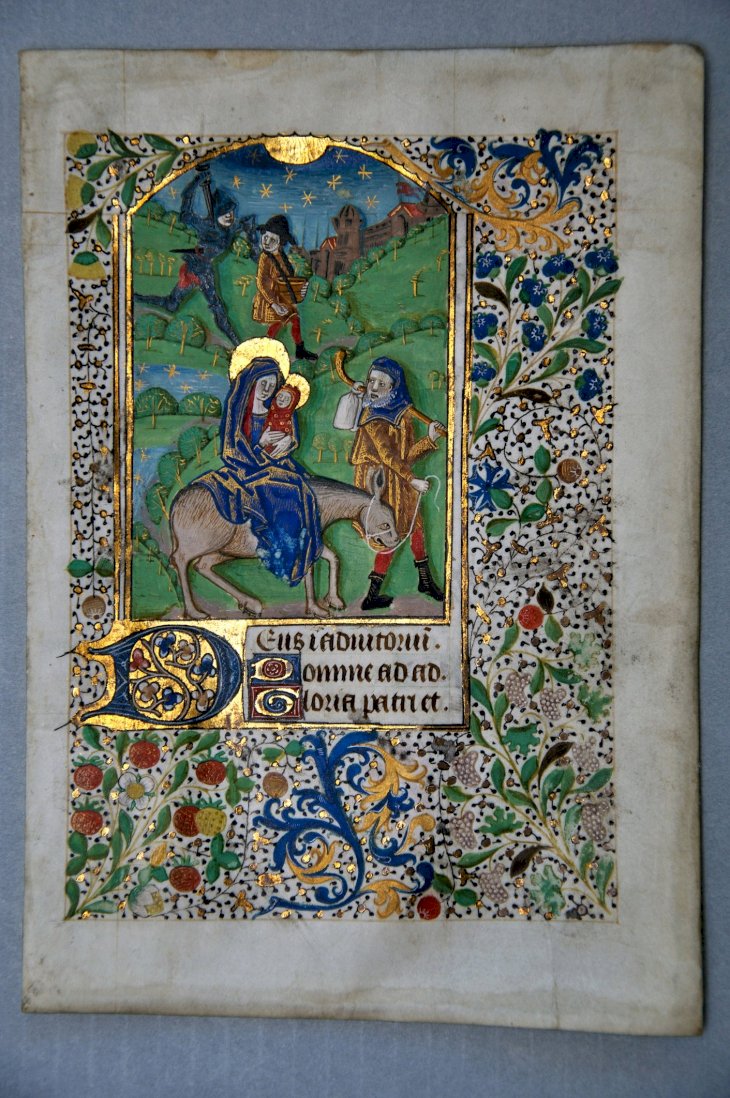 Deus i adiutoriū.
Domine ad ad.
Gloria patri et.